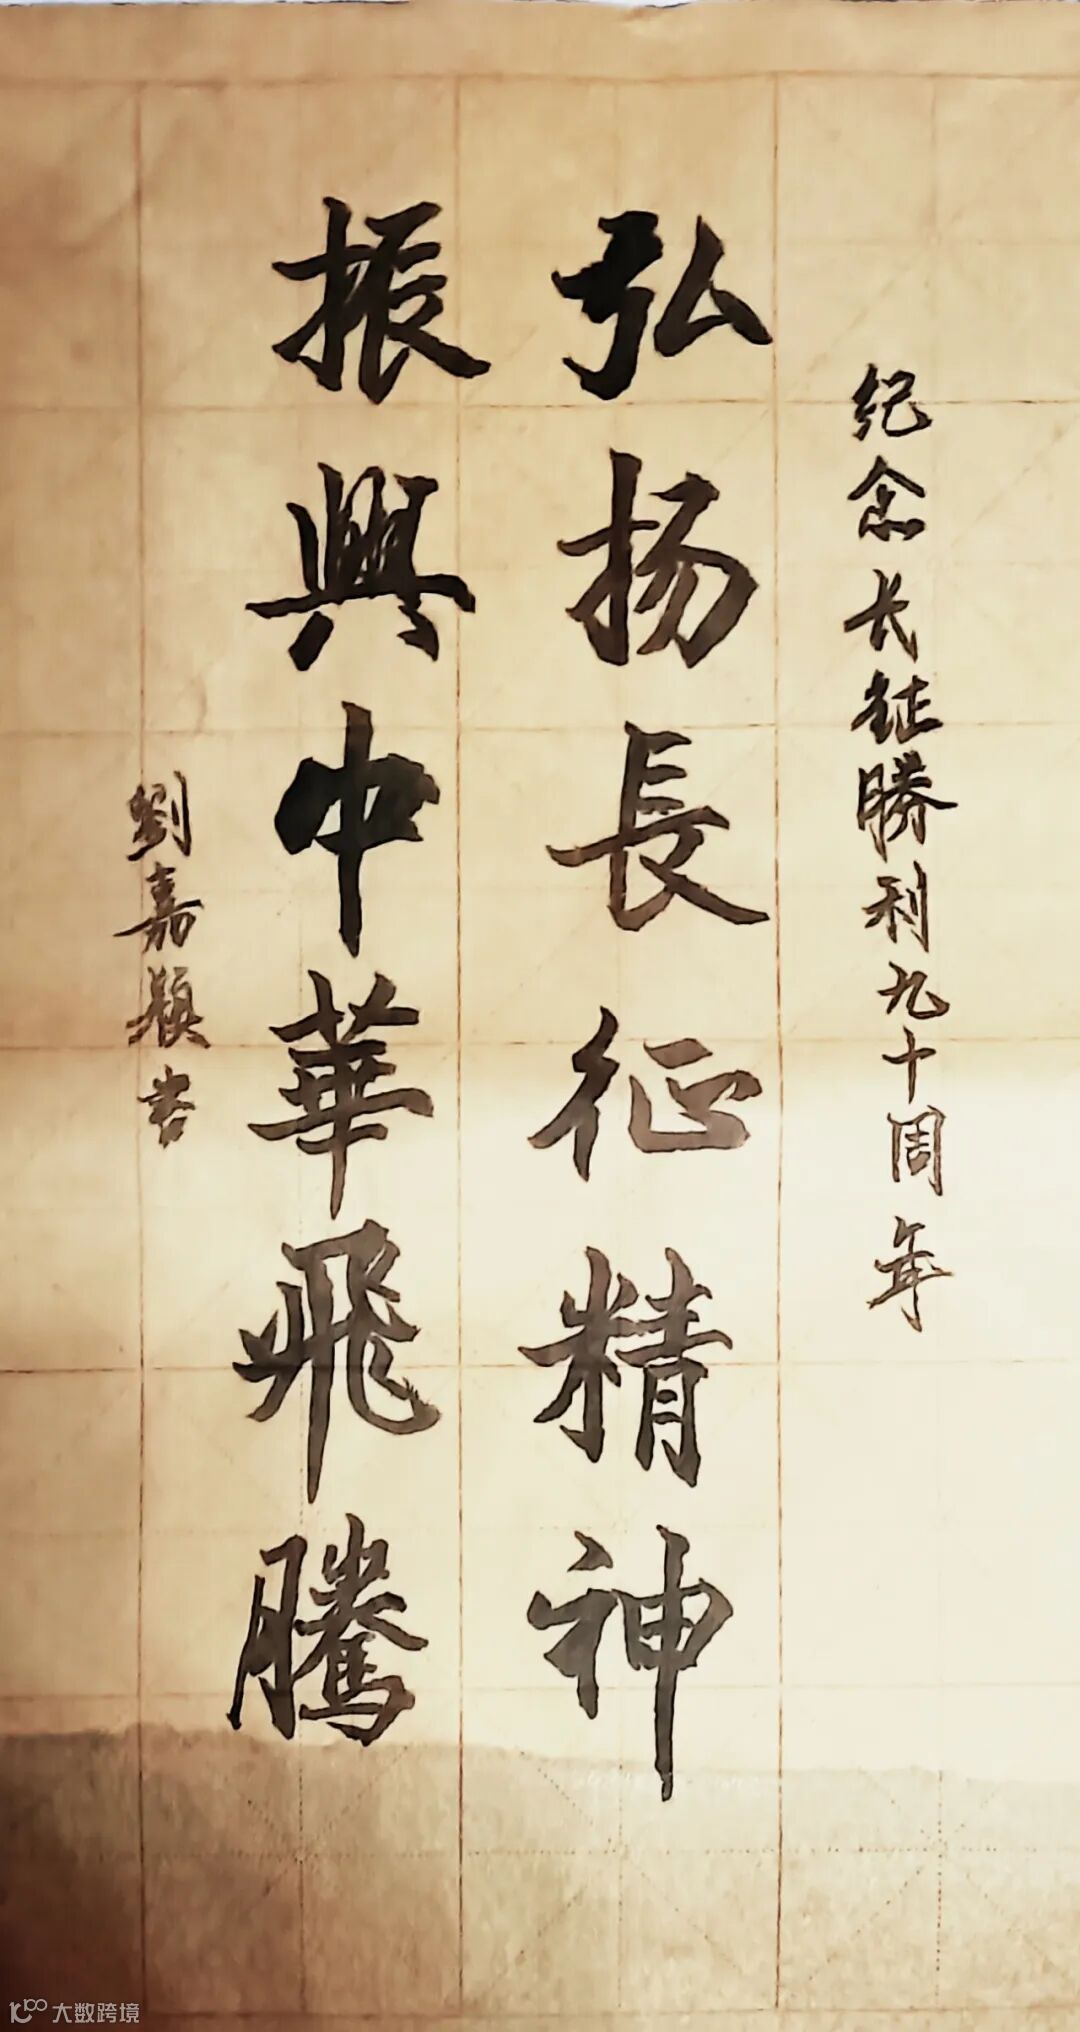 纪念长征勝利九十周年
弘扬長征精神
振興中華飛騰
劉嘉颖书
大数跨境